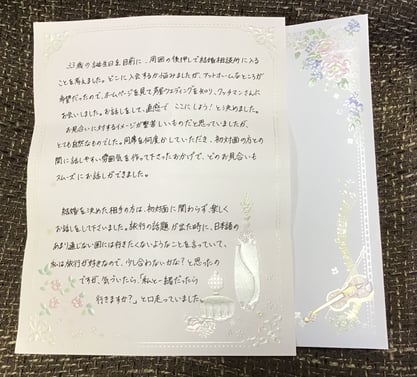 33歳の誕生日を目前に、周囲の後押しで結婚相談所に入る
ことを考えました。どこに入会するか悩みましたが、アットホームなところが
希望だったので、ホームページを見て寿ウエディングを知り、クッチマンさんに
お会いしました。お話しをして、直感で ここにしよう！と決めました。
お見合いに対するイメージが堅苦しいものだと思っていましたが、
とても自然なものでした。同席を何度かしていただき、初対面の方との
間に話しやすい雰囲気を作って下さったおかげで、どのお見合いも
スムーズにお話しができました。
結婚を決めた相手の方は、初対面に関わらず、楽しく
お話しをして下さいました。旅行の話題が出た時に、日本語の
あまり通じない国には行きたくないようなことを言っていて、
私は旅行が好きなので、少し合わないかな？と思ったの
ですが、気づいたら、「私と一緒だったら
行きますか？」と口走っていました。